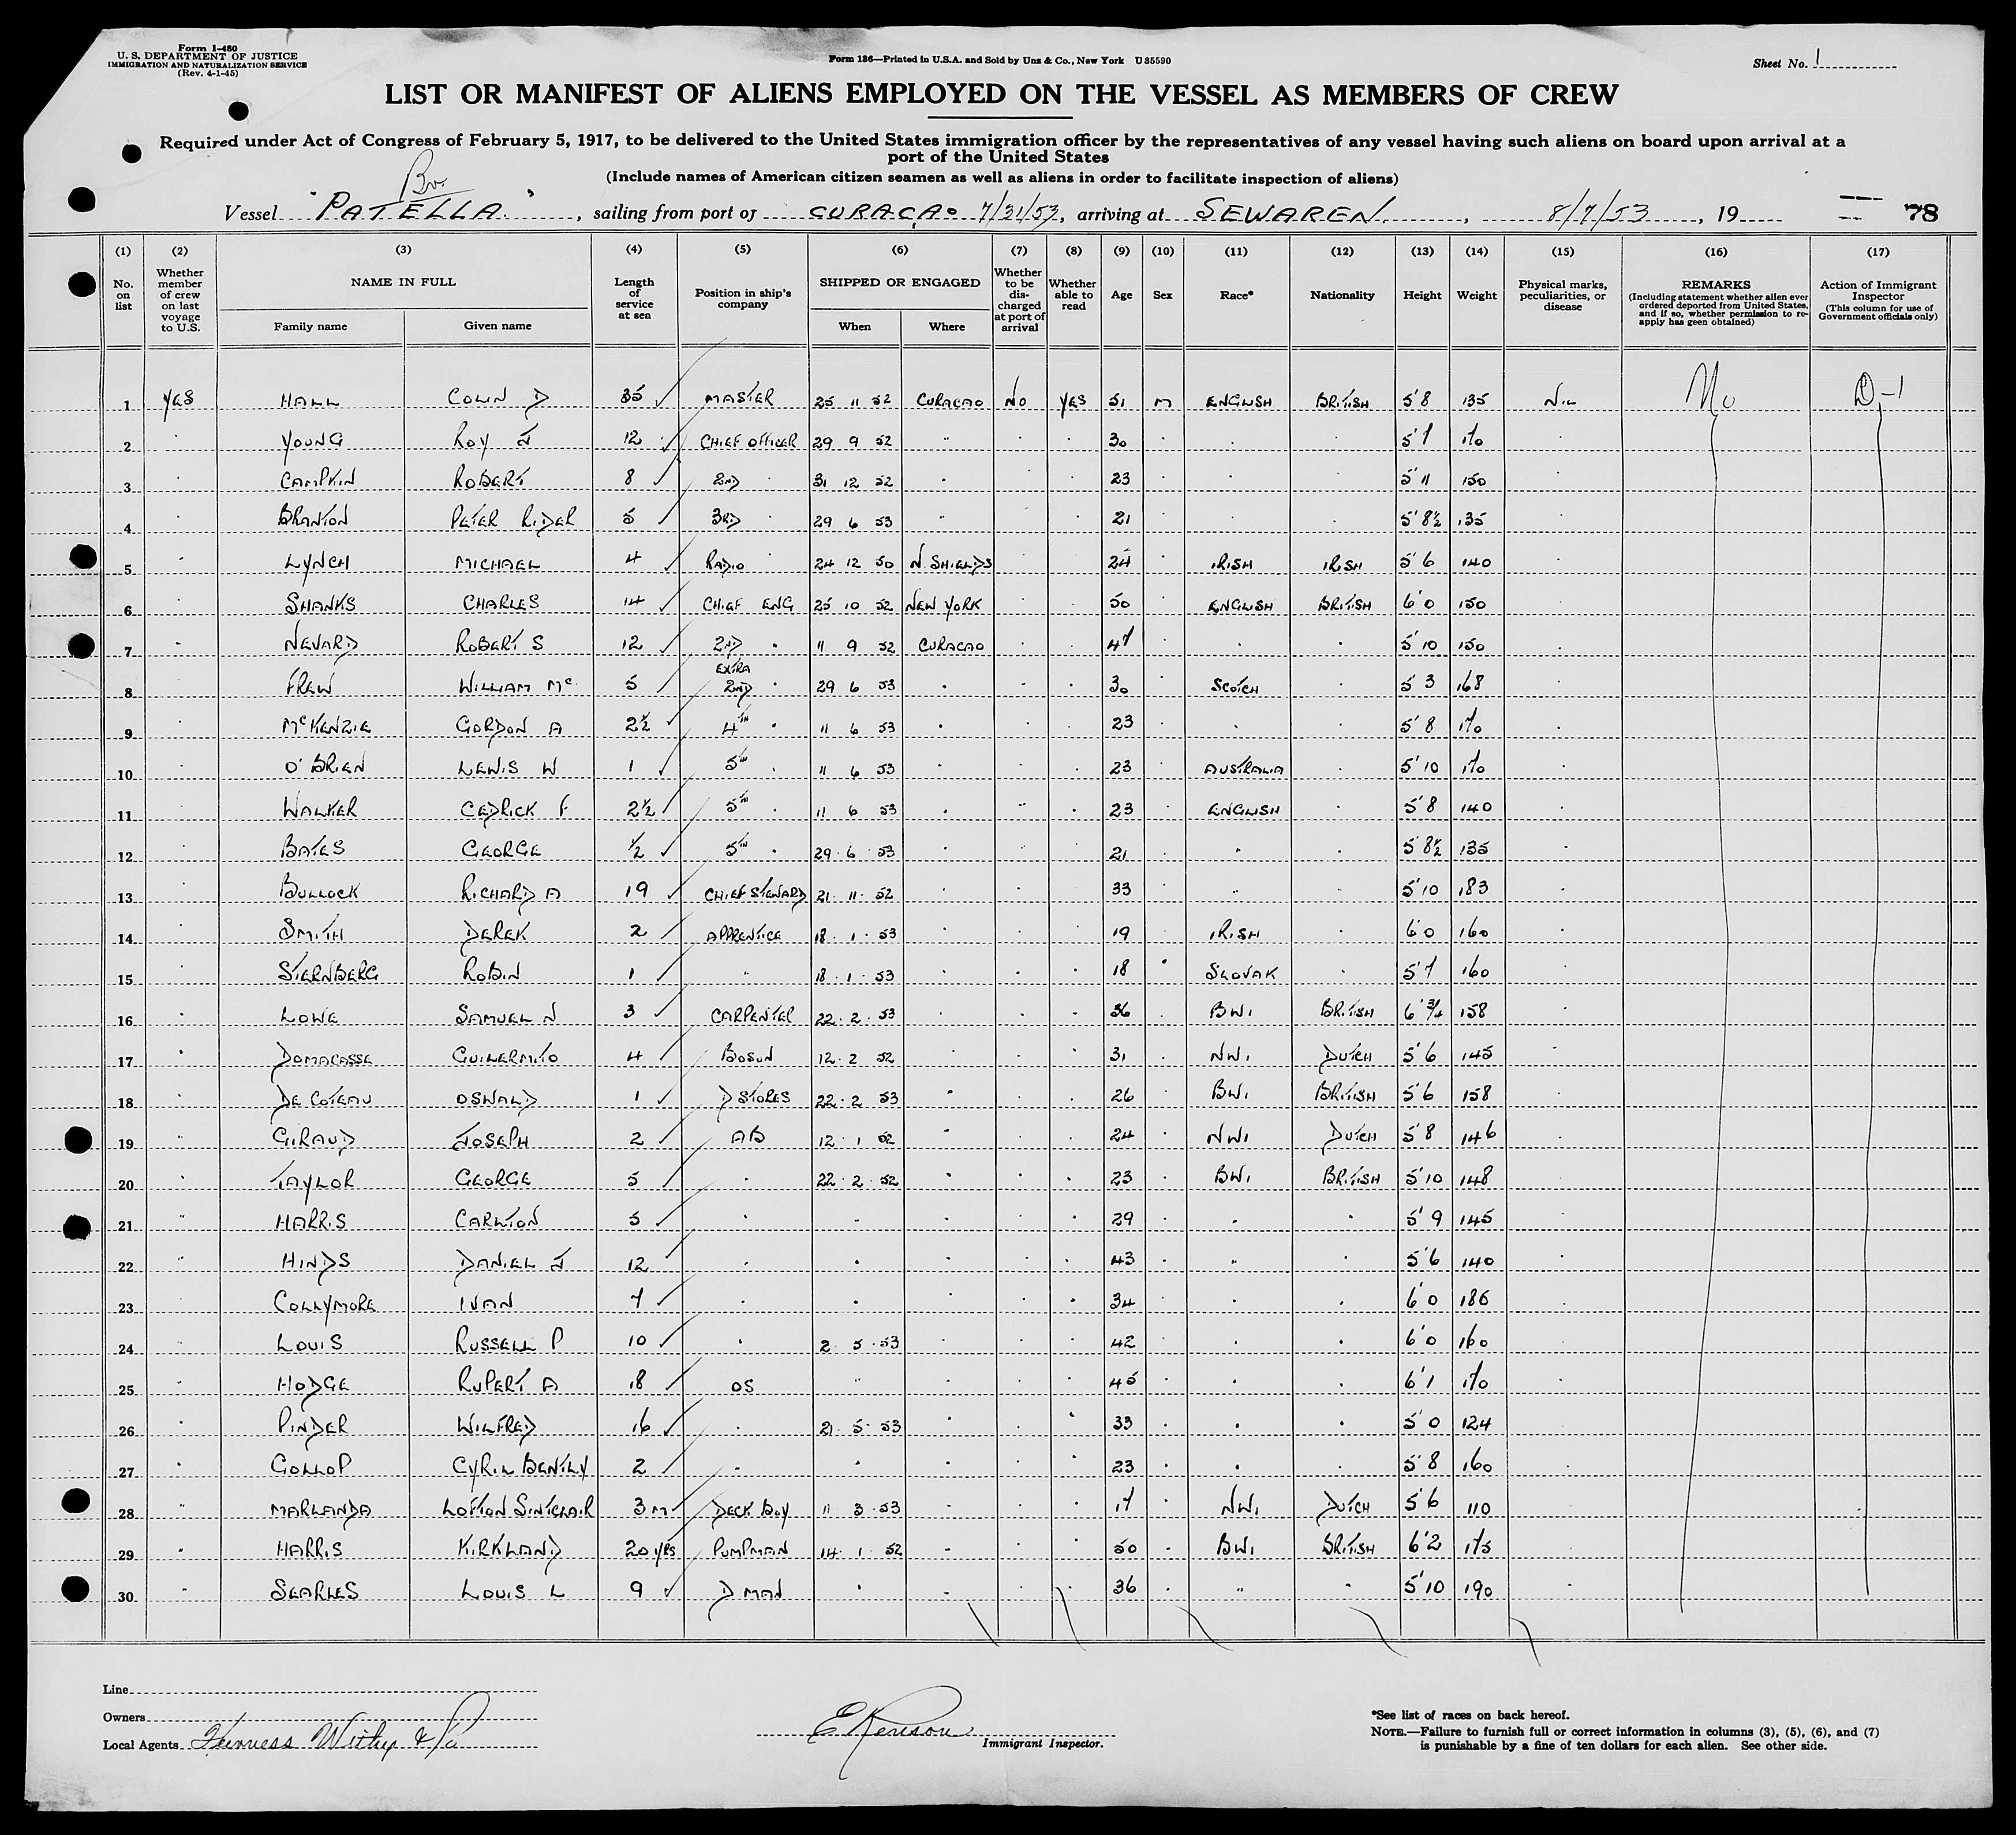 Form I-480
U. S. DEPARTMENT OF JUSTICE
IMMIGRATION AND NATURALIZATION SERVICE
(Rev. 4-1-45)
Form 136—Printed in U.S.A. and Sold by Unz & Co., New York U35590
Sheet No. 1
LIST OR MANIFEST OF ALIENS EMPLOYED ON THE VESSEL AS MEMBERS OF CREW
Required under Act of Congress of February 5, 1917, to be delivered to the United States immigration officer by the representatives of any vessel having such aliens on board upon arrival at a
port of the United States
(Include names of American citizen seamen as well as aliens in order to facilitate inspection of aliens)
Br.
Vessel "PATELLA", sailing from port of CURAÇAO 7/31/53, arriving at SEWAREN, 8/7/53, 19 78
(1) (2) (3) (4) (5) (6) (7) (8) (9) (10) (11) (12) (13) (14) (15) (16) (17)
No. on list
Whether member of crew on last voyage to U.S.
NAME IN FULL
Family name
Given name
Length of service at sea
Position in ship's company
SHIPPED OR ENGAGED
When
Where
Whether to be discharged at port of arrival
Whether able to read
Age
Sex
Race*
Nationality
Height
Weight
Physical marks, peculiarities, or disease
REMARKS
(Including statement whether alien ever ordered deported from United States, and if so, whether permission to reapply has geen obtained)
Action of Immigrant Inspector
(This column for use of Government officials only)
1 YES HALL COLIN D 35 MASTER 25 11 52 CURACAO NO YES 51 M ENGLISH BRITISH 5'8 135 NIL No D-1
2 " YOUNG ROY J 12 CHIEF OFFICER 29 9 52 " " " 30 " " " 5'7 170 "
3 " CAMPKIN ROBERT 8 2ND " 31 12 52 " " " 23 " " " 5'11 150 "
4 " BRANTON PETER RIDER 5 3RD " 29 6 53 " " " 21 " " " 5'8½ 135 "
5 " LYNCH MICHAEL 4 RADIO " 24 12 50 N. SHIELDS " " 24 " IRISH IRISH 5'6 140 "
6 " SHANKS CHARLES 14 CHIEF ENG 25 10 52 NEW YORK " " 50 " ENGLISH BRITISH 6'0 150 "
7 " NEVARD ROBERT S 12 2ND " 11 9 52 CURACAO " " 47 " " " 5'10 150 "
8 " FREW WILLIAM Mc 5 EXTRA 2ND " 29 6 53 " " " 30 " SCOTCH " 5'3 168 "
9 " McKENZIE GORDON A 2½ 4TH " 11 6 53 " " " 23 " " " 5'8 170 "
10 " O'BRIEN LEWIS W 1 5TH " 11 6 53 " " " 23 " AUSTRALIA " 5'10 170 "
11 " WALKER CEDRICK F 2½ 5TH " 11 6 53 " " " 23 " ENGLISH " 5'8 140 "
12 " BATES GEORGE ½ 5TH " 29 6 53 " " " 21 " " " 5'8½ 135 "
13 " BULLOCK RICHARD A 19 CHIEF STEWARD 21 11 52 " " " 33 " " " 5'10 183 "
14 " SMITH DEREK 2 APPRENTICE 18 1 53 " " " 19 " IRISH " 6'0 160 "
15 " STERNBERG ROBIN 1 " 18 1 53 " " " 18 " SLOVAK " 5'7 160 "
16 " LOWE SAMUEL N 3 CARPENTER 22 2 53 " " " 36 " BWI BRITISH 6'¾ 158 "
17 " DOMACASSE GUILERMITO 4 BOSUN 12 2 52 " " " 31 " NWI DUTCH 5'6 145 "
18 " DE COTEAU OSWALD 1 D STORES 22 2 53 " " " 26 " BWI BRITISH 5'6 158 "
19 " GIRAUD JOSEPH 2 AB 12 1 52 " " " 24 " NWI DUTCH 5'8 146 "
20 " TAYLOR GEORGE 5 " 22 2 52 " " " 23 " BWI BRITISH 5'10 148 "
21 " HARRIS CARLTON 5 " " " " " 29 " " " 5'9 145 "
22 " HINDS DANIEL J 12 " " " " " 43 " " " 5'6 140 "
23 " COLLYMORE IVAN 7 " " " " " 34 " " " 6'0 186 "
24 " LOUIS RUSSELL P 10 " 2 5 53 " " " 42 " " " 6'0 160 "
25 " HODGE RUPERT A 18 OS " " " " 45 " " " 6'1 170 "
26 " PINDER WILFRED 16 " 21 5 53 " " " 33 " " " 5'0 124 "
27 " GOLLOP CYRIL BENTLY 2 " " " " " 23 " " " 5'8 160 "
28 " MARLANDA LOFTON SINTCLAIR 3 M DECK BOY 11 3 53 " " " 17 " NWI DUTCH 5'6 110 "
29 " HARRIS KIRKLAND 20 YRS PUMPMAN 14 1 52 " " " 50 " BWI BRITISH 6'2 175 "
30 " SEARLES LOUIS L 9 D MAN " " " " 36 " " " 5'10 190 "
Line
Owners
Local Agents Furness Withy & Co
E Kenison
Immigrant Inspector.
*See list of races on back hereof.
NOTE.—Failure to furnish full or correct information in columns (3), (5), (6), and (7)
is punishable by a fine of ten dollars for each alien. See other side.